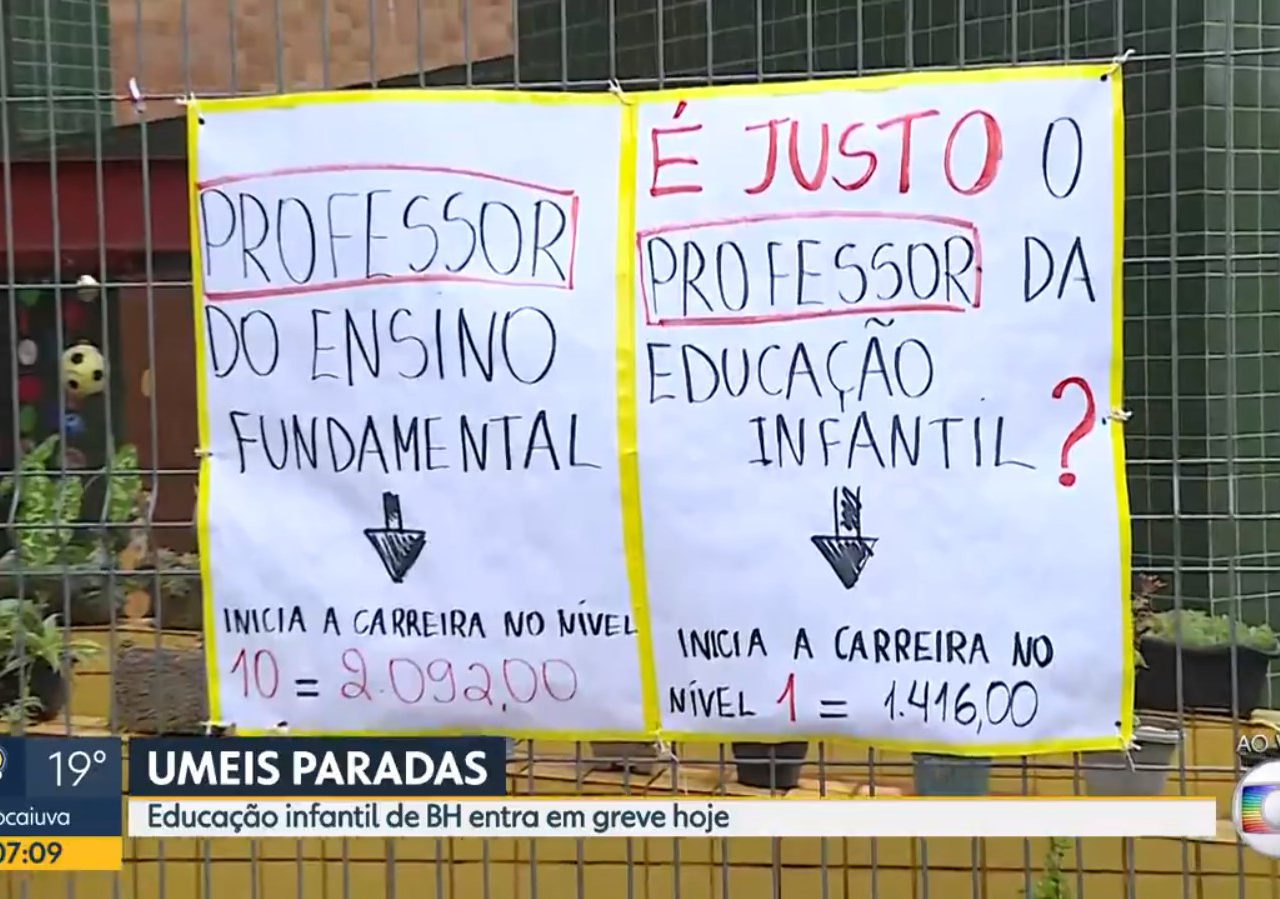 PROFESSOR
DO ENSINO
FUNDAMENTAL
INICIA A CARREIRA NO NÍVEL
10 = 2.092,00
É JUSTO O
PROFESSOR DA
EDUCAÇÃO
INFANTIL ?
INICIA A CARREIRA NO
NÍVEL 1 = 1.416,00
19°
07:09
UMEIS PARADAS
Educação infantil de BH entra em greve hoje
AO